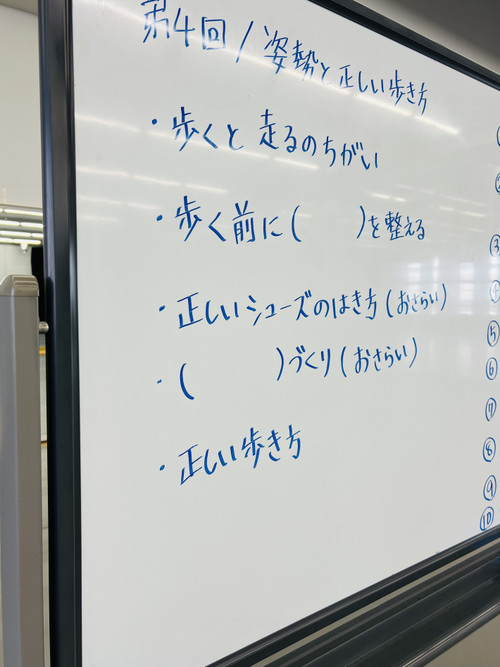 第4回/姿勢と正しい歩き方
・歩くと走るのちがい
・歩く前に(　　)を整える
・正しいシューズのはき方(おさらい)
・(　　　)づくり(おさらい)
・正しい歩き方
③
⑤
⑥
⑦
⑧
⑨
⑩